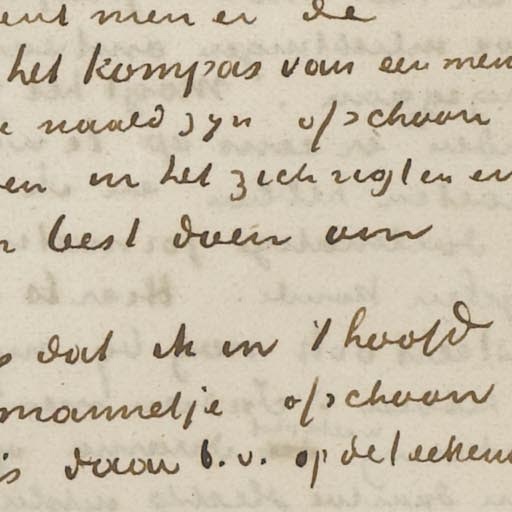 ent men er de
het kompas van een men
naald zyn ofschoon
en in het zich rigten en
best doen om
dat ik in 't hoofd
mannetje ofschoon
is daar b.v. op de teeken